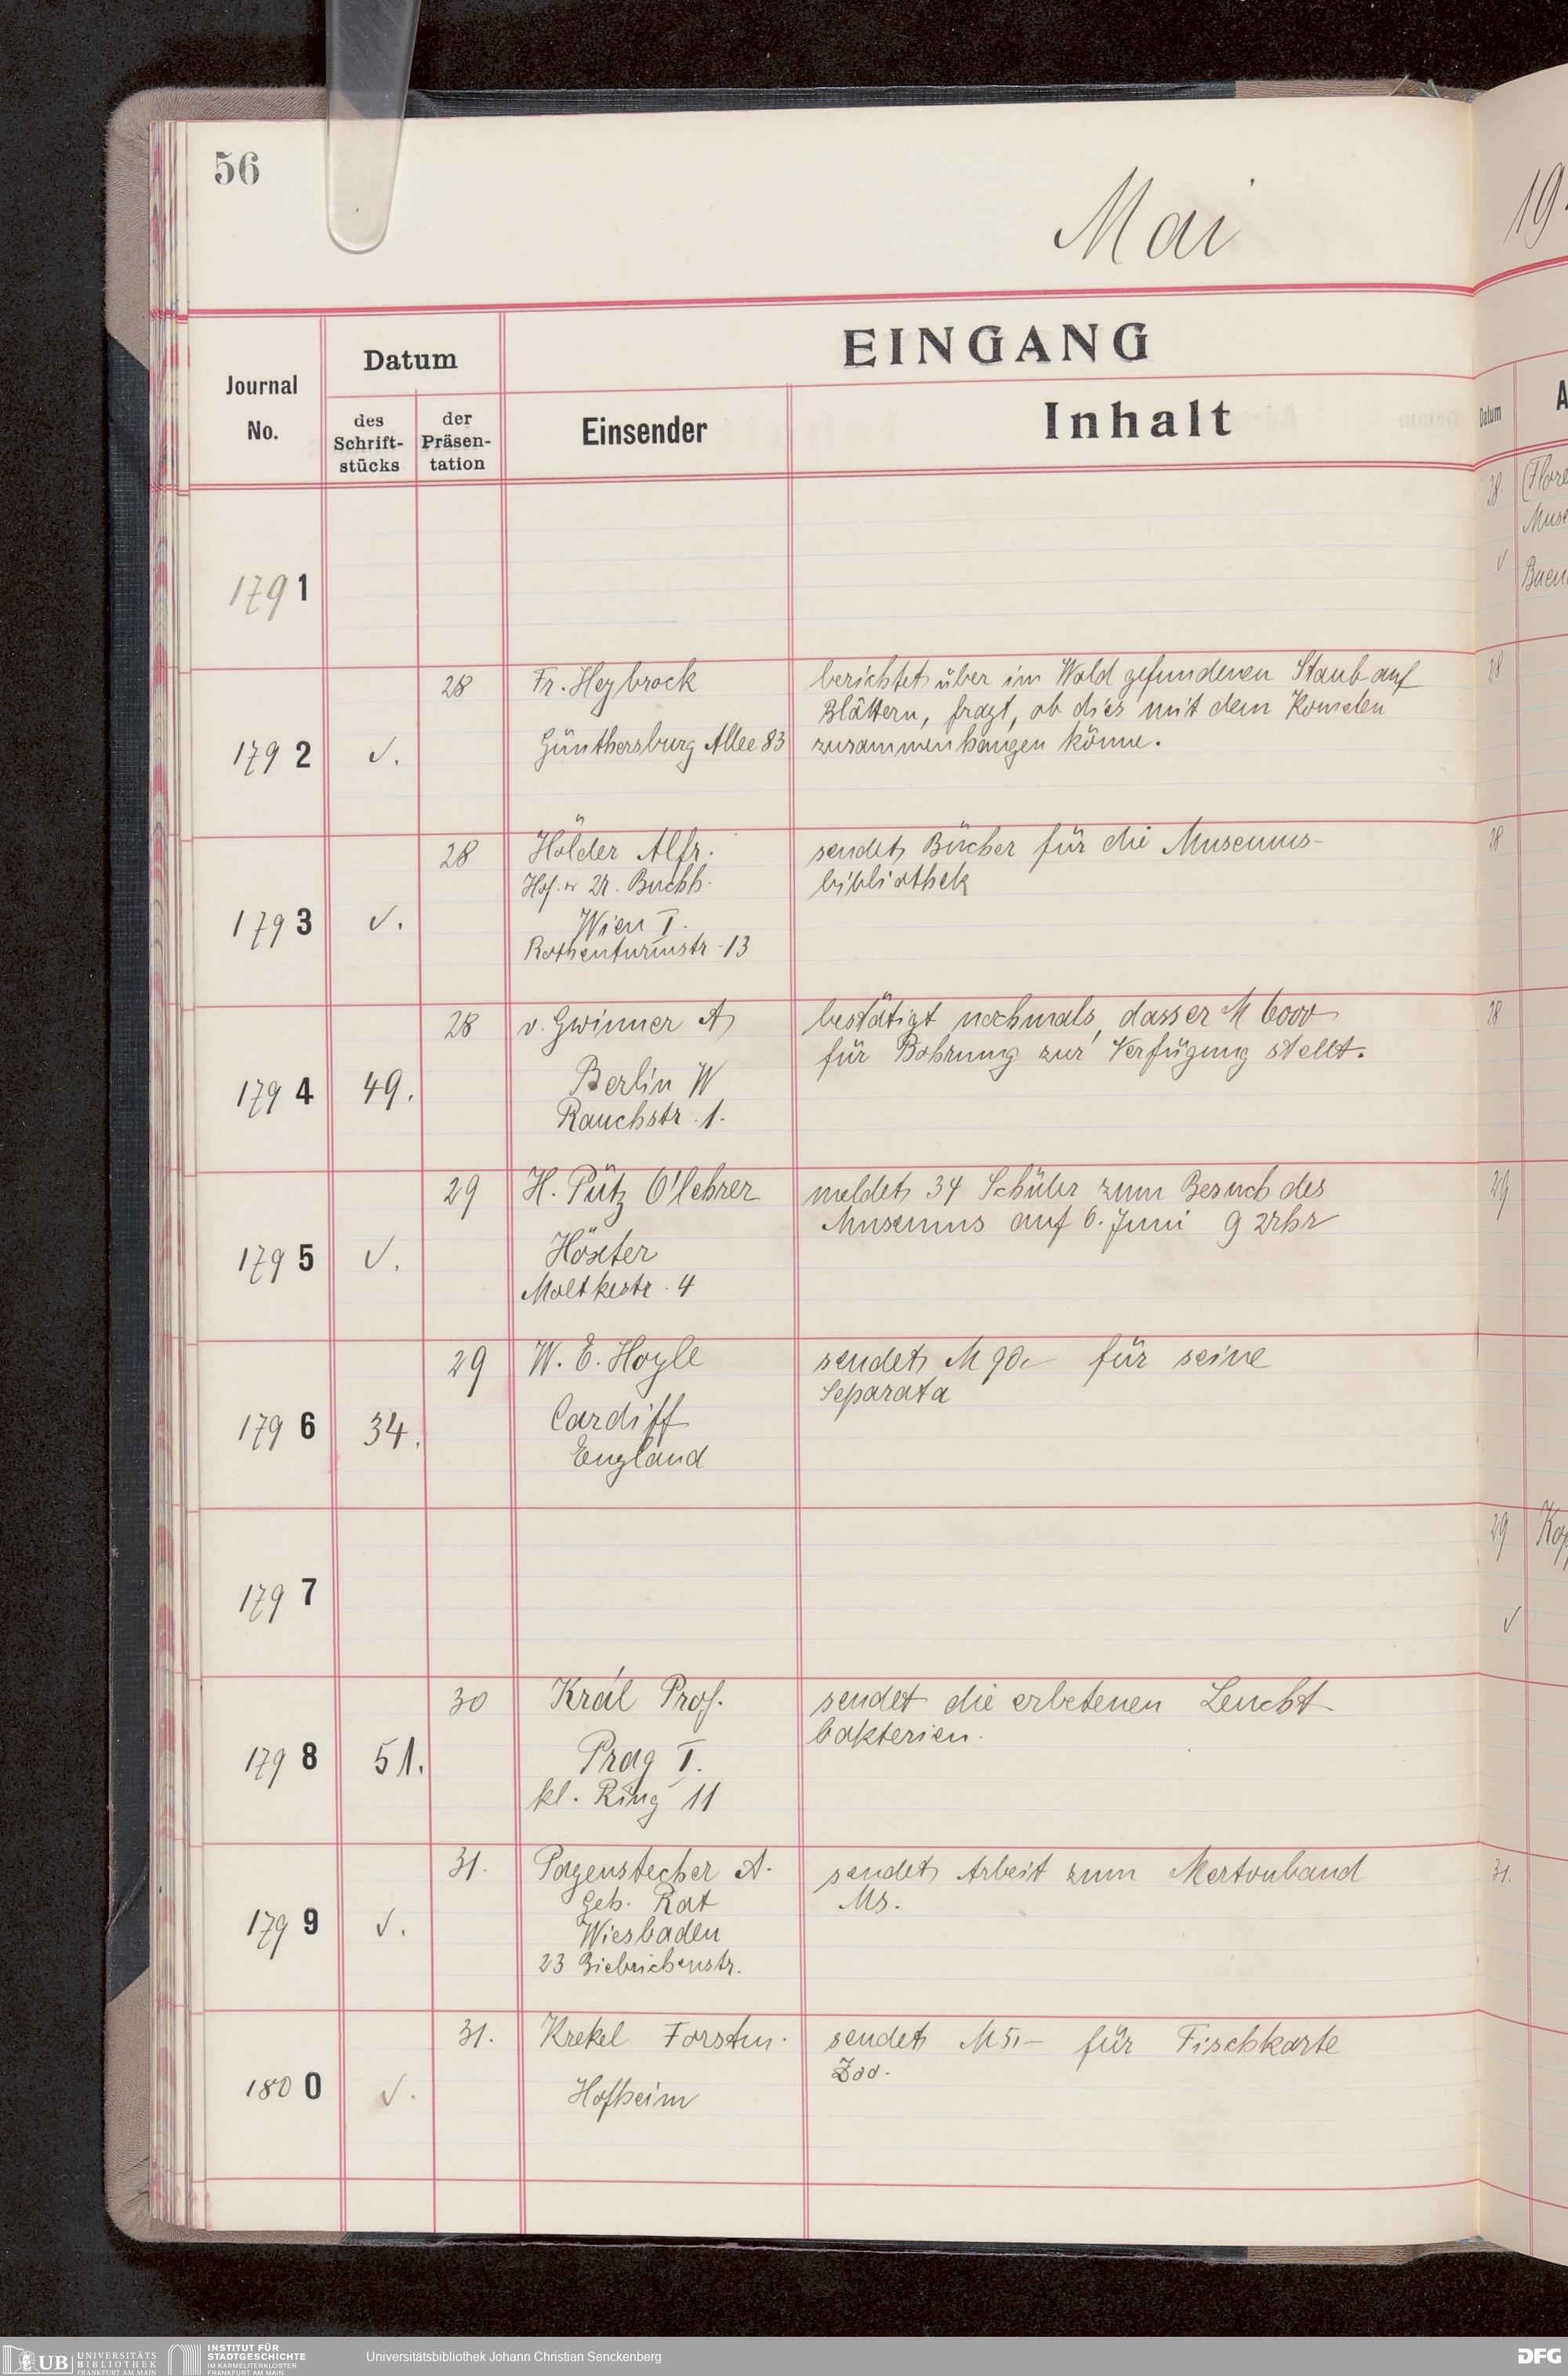 56
Mai
19
EINGANG
Journal
No.
Datum
des
Schrift-
stücks
der
Präsen-
tation
Einsender
Inhalt
Datum
A
28.
1791
28
Fr. Heybrock
berichtet über im Wald gefundenen Staub auf
Blättern, fragt, ob dies mit dem Kometen
1792
√.
Günthersburg Allee 83
zusammenhängen könne.
28
28
Hölder Alfr.
sendet Bücher für die Museums-
Hof. u. U. Buchh.
bibliothek
1793
√.
Wien I.
Rothenturmstr. 13
28
28
v. Gwinner A
bestätigt nochmals, dass er M 6000
für Bohrung zur Verfügung stellt.
1794
49.
Berlin W
Rauchstr. 1.
28
29
H. Pütz O'lehrer
meldet 34 Schüler zum Besuch des
Museums auf 6. Juni 9 Uhr
1795
√.
Höxter
Moltkestr. 4
29
29
W. E. Hoyle
sendet M 90.- für seine
Separata
1796
34.
Cardiff
England
1797
29
√
30
Král Prof.
sendet die erbetenen Leucht
bakterien.
1798
51.
Prag I.
kl. Ring 11
31.
Pagenstecher A.
sendet Arbeit zum Mertonband
Geh. Rat
Ms.
1799
√.
Wiesbaden
23 Biebricherstr.
31.
31.
Krekel Forstm.
sendet M 5,- für Fischkarte
Zoo.
1800
√.
Hofheim
UB UNIVERSITÄTS
BIBLIOTHEK
FRANKFURT AM MAIN
INSTITUT FÜR
STADTGESCHICHTE
IM KARMELITERKLOSTER
FRANKFURT AM MAIN
Universitätsbibliothek Johann Christian Senckenberg
DFG